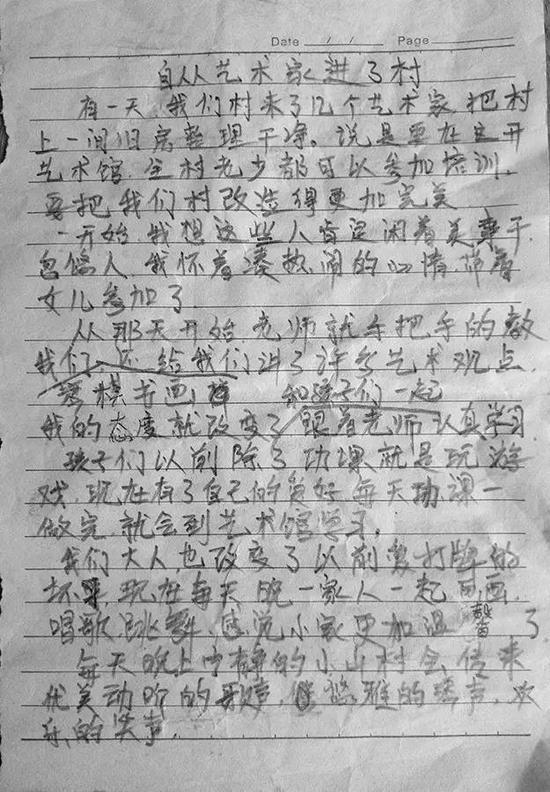 Date / / Page
自从艺术家进了村
有一天,我们村来了几个艺术家把村
上一间旧房整理干净。说是要在这开
艺术馆,全村老少都可以参加培训,
要把我们村改造得更加完美
一开始,我想这些人肯定闲着美事干
忽悠人,我怀着凑热闹的心情,带着
女儿参加了
从那天开始老师就手把手的教
我们,还给我们讲了许多艺术观点,
琴棋书画, 和孩子们一起
我的态度就改变了 跟着老师认真学习
孩子们以前除了功课就是玩游
戏,现在有了自己的爱好每天功课一
做完,就会到艺术馆学习,
我们大人也改变了以前爱打牌的
坏 现在每天晚一家人一起画画,
唱歌,跳舞,感觉小家更加温馨了
每天晚上宁静的小山村会传来
优美动听的歌声,悠雅的琴声,欢
乐的笑声,